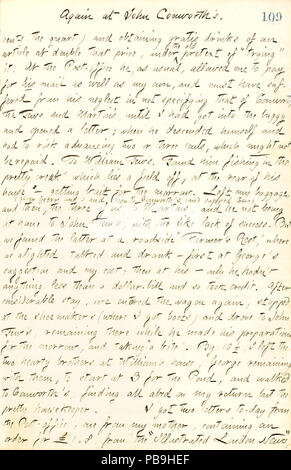 Again at John Conworth's.
109
cents the quart) and obtaining gratis drinks of an
article at double that price, under the pretext of "trying"
it. At the Post-office he as usual, allowed me to pay
for his mail as well as my own, and must have suf-
fered from his neglect in not specifying that of Conworth
the Tews and Martins until I had got into the buggy
and opened a letter; when he descended himself and
had to risk advancing two or three cents, which might not
be repaid. To William Tews. Found him fishing in the
pretty creek which lies a field off, at the rear of his
house & getting bait for the morrow. Left my luggage,
and then, the three of us to Martins and he not being
at home to John Tews, with the like lack of success. But
we found the latter at a roadside "Farmer's Rest" where
we alighted talked and drank - first at George's
suggestion and my cost; then at his - only he hadn't
anything less than a dollar-bill and so took credit. After
considerable stay, we entered the wagon again, stopped
at the shoemakers (where I got boots) and drove to John
Tews, remaining there while he made his preparations
for the morrow, and taking a "bite". By 10½ I left the
two hearty brothers at William's house, George remaining
with them, to start at 3 for the Pond, and walked
to Conworth's, finding all abed on my return but the
pretty housekeeper. I got two letters to-day from
the Post-office, one from my mother, containing an
order for £1.8 from the "Illustrated London News"
alamy
PB9HEF